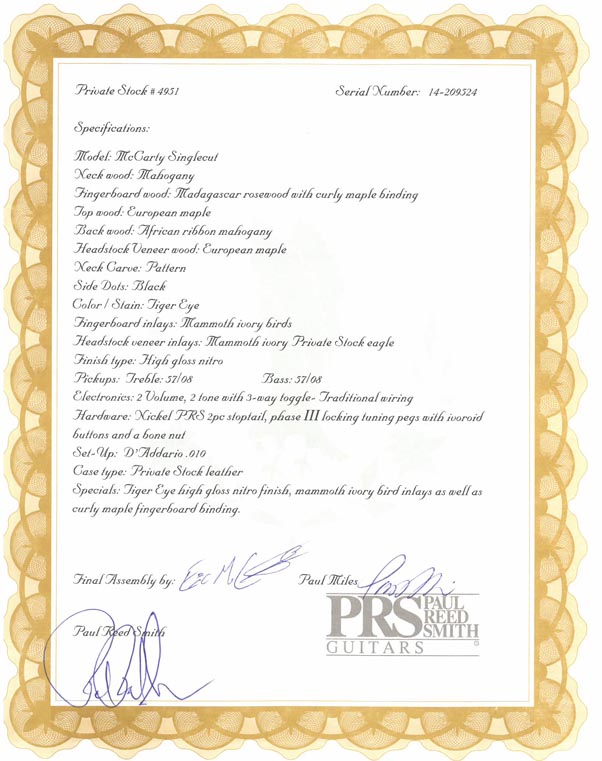 Private Stock # 4951 Serial Number: 14-209524
Specifications:
Model: McCarty Singlecut
Neck wood: Mahogany
Fingerboard wood: Madagascar rosewood with curly maple binding
Top wood: European maple
Back wood: African ribbon mahogany
Headstock Veneer wood: European maple
Neck Carve: Pattern
Side Dots: Black
Color / Stain: Tiger Eye
Fingerboard inlays: Mammoth ivory birds
Headstock veneer inlays: Mammoth ivory Private Stock eagle
Finish type: High gloss nitro
Pickups: Treble: 57/08 Bass: 57/08
Electronics: 2 Volume, 2 tone with 3-way toggle- Traditional wiring
Hardware: Nickel PRS 2pc stoptail, phase III locking tuning pegs with ivoroid
buttons and a bone nut
Set-Up: D'Addario .010
Case type: Private Stock leather
Specials: Tiger Eye high gloss nitro finish, mammoth ivory bird inlays as well as
curly maple fingerboard binding.
Final Assembly by: Paul Miles
Paul Reed Smith
PRS PAUL
REED
SMITH
GUITARS